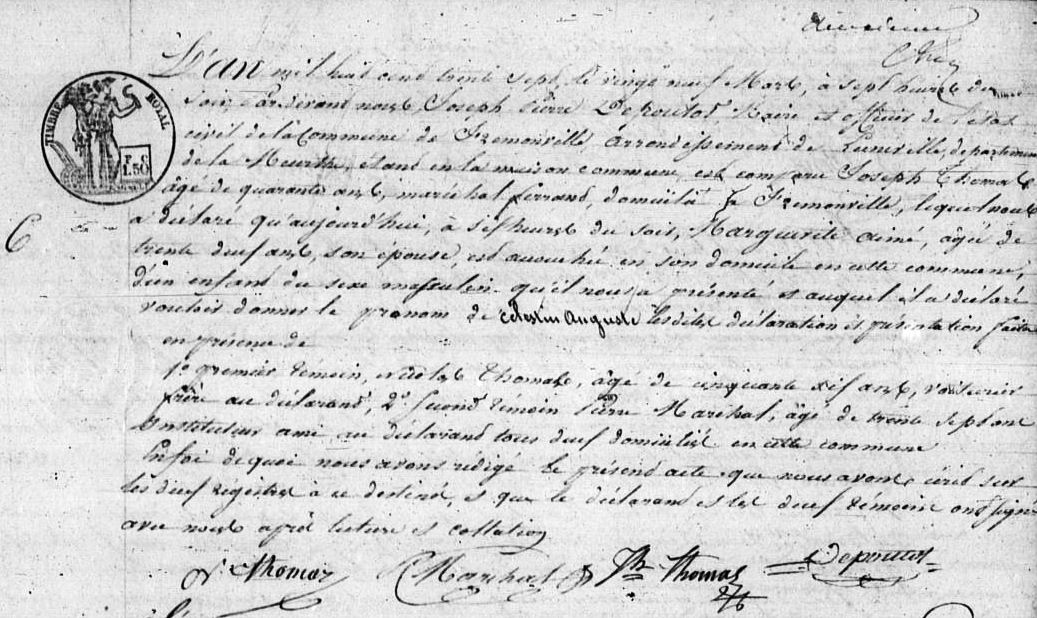 L'an mil huit cend trente sept, le vingt neuf Mars, à sept heures du
soir, Pardevant nous Joseph Pierre Depoutot Maire et officier de l'état
civil de la Commune de Fremonville arrondissement de Luneville, departement
TIMBRE ROYAL
F. C.
1.50
de la Meurthe, étand en la maison commune, est comparu Joseph Thomas
âgé de quarante ans, maréchal ferrand, domicilié à Fremonville, lequel nous
a déclaré qu'aujourd'hui, à sif heures du soir, Marguerite aimé, âgée de
trente deuf ans, son épouse, est accouchée en son domicile en cette commune,
d'un enfant du sexe masculin qu'il nous a présenté et auquel il a déclaré
vouloir donner le prenom de Celestin Auguste lesdites déclaration et présentation faite
en présence de
1º premier témoin, Nicolas Thomas, âgé de cinquante sif ans, voiturier
frère au déclarand, 2º second témoin Pierre Marchal, âgé de trente sept ans
Instituteur ami au déclarand tous deuf domiciliés en cette commune
En foi de quoi nous avons rédigé le présend acte que nous avons écrid sur
les deuf registres à ce destiné, et que le déclarand et les deuf témoins ont signé
avec nous après lecture et collation
N. Thomas P Marchal Jh Thomas Depoutot